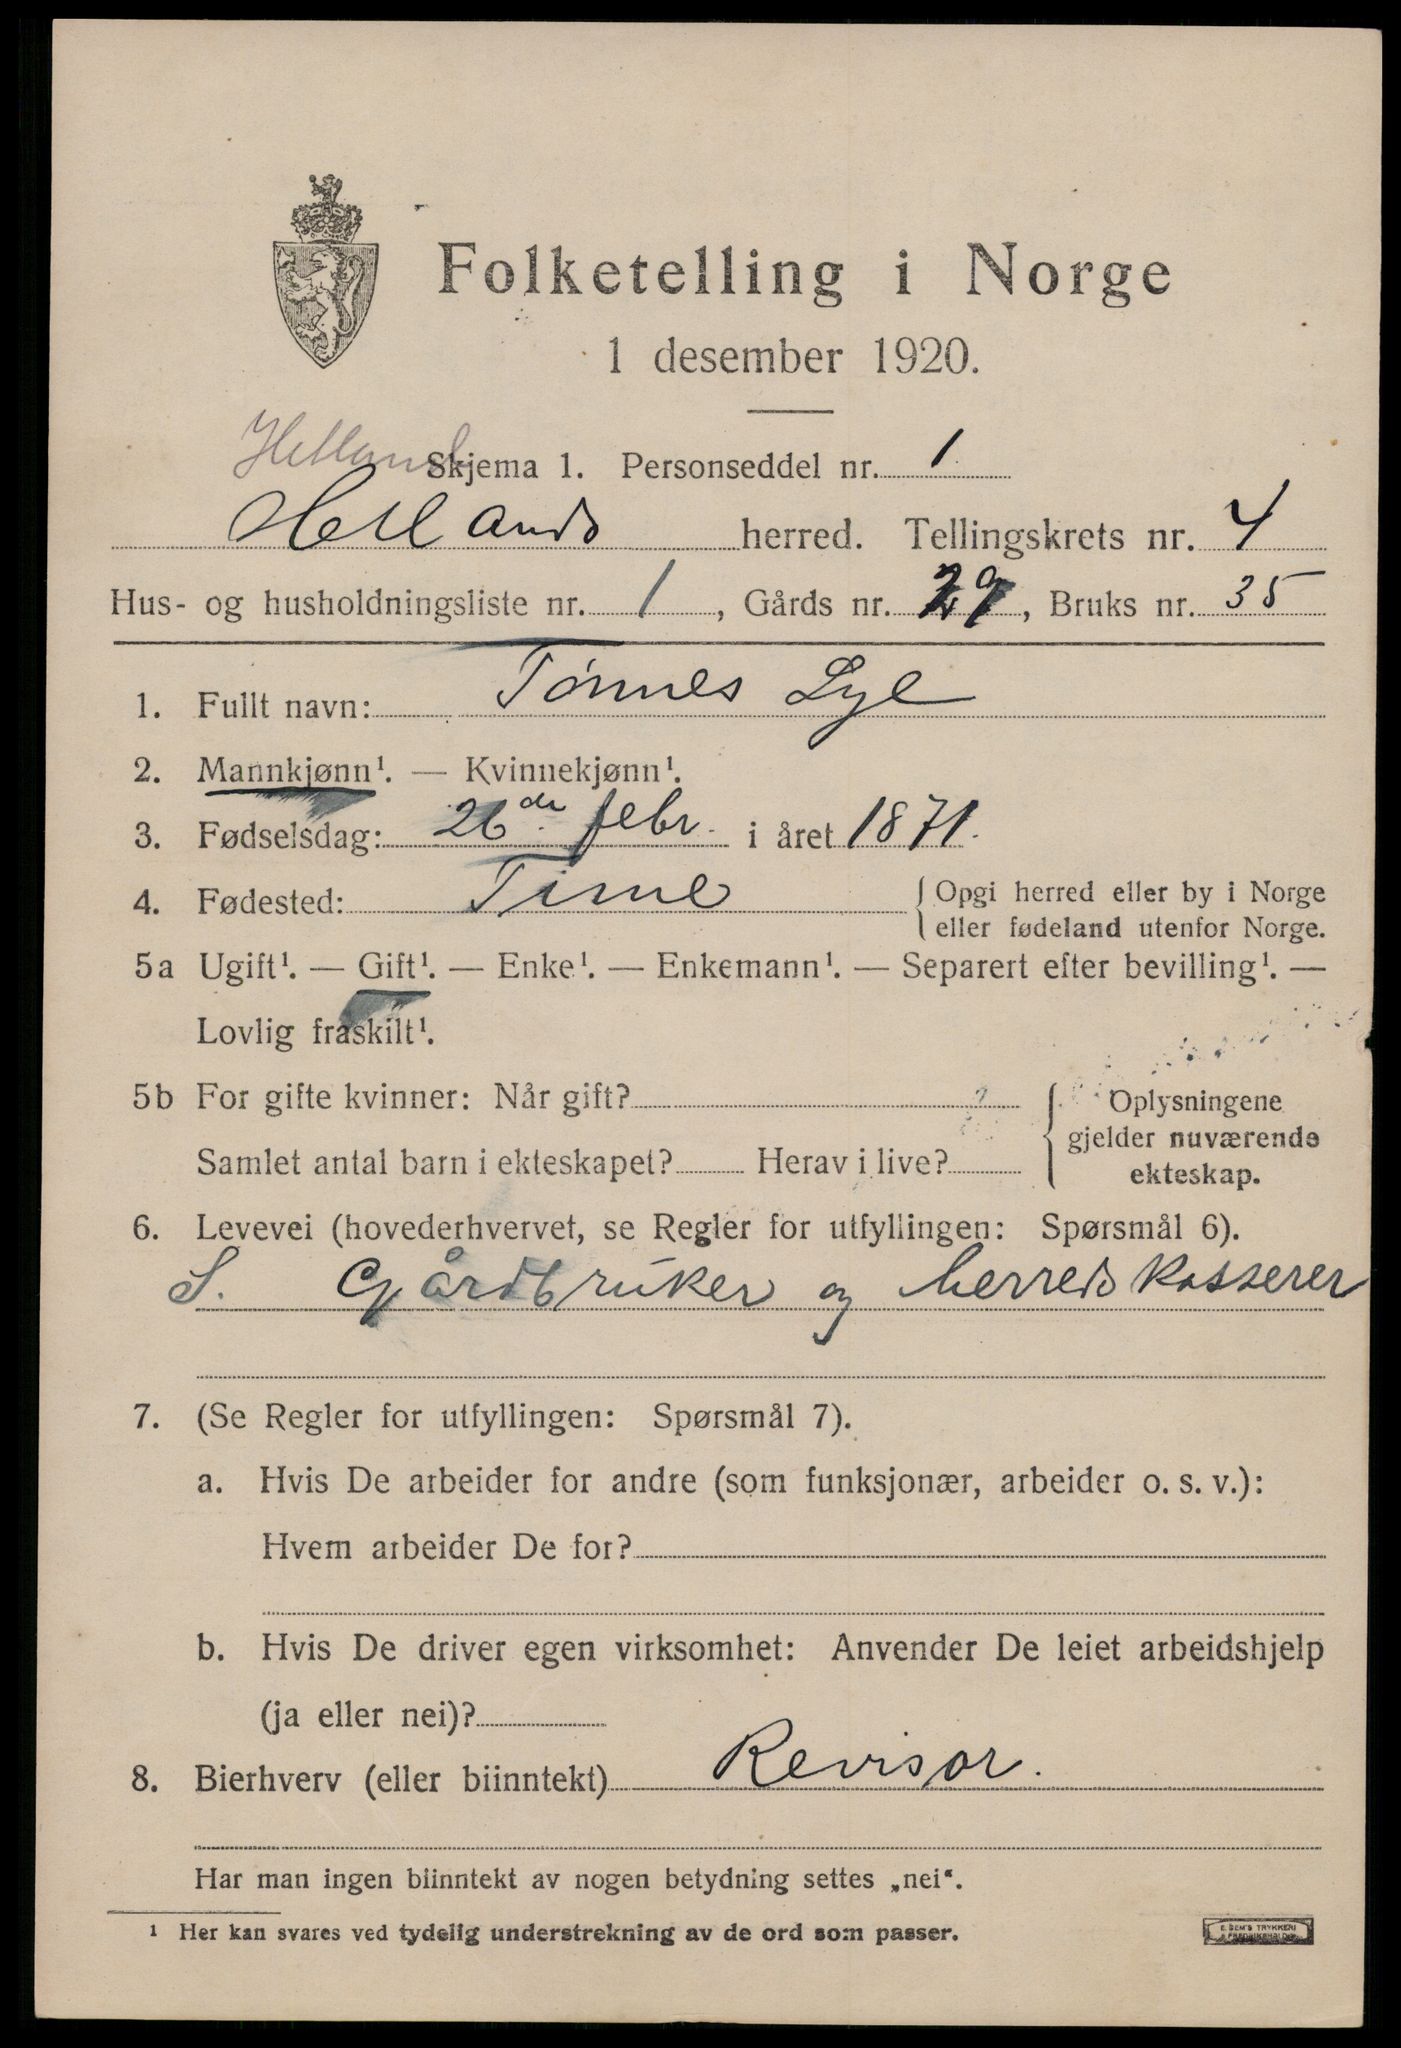 Folketelling i Norge
1 desember 1920.
Hetland
Skjema 1. Personseddel nr. 1
Hetlands herred. Tellingskrets nr. 4
Hus- og husholdningsliste nr. 1, Gårds nr. 29, Bruks nr. 35
1. Fullt navn: Tønnes Lye
2. Mannkjønn¹. — Kvinnekjønn¹.
3. Fødselsdag: 26de febr. i året 1871.
4. Fødested: Time { Opgi herred eller by i Norge
eller fødeland utenfor Norge.
5a Ugift¹. — Gift¹. — Enke¹. — Enkemann¹. — Separert efter bevilling¹. —
Lovlig fraskilt¹.
5b For gifte kvinner: Når gift? { Oplysningene
gjelder nuværende
Samlet antal barn i ekteskapet? Herav i live? ekteskap.
6. Levevei (hovederhvervet, se Regler for utfyllingen: Spørsmål 6).
S. Gårdbruker og herredskasserer
7. (Se Regler for utfyllingen: Spørsmål 7).
a. Hvis De arbeider for andre (som funksjonær, arbeider o. s. v.):
Hvem arbeider De for?
b. Hvis De driver egen virksomhet: Anvender De leiet arbeidshjelp
(ja eller nei)?
8. Bierhverv (eller biinntekt) Revisor.
Har man ingen biinntekt av nogen betydning settes „nei“.
¹ Her kan svares ved tydelig understrekning av de ord som passer.
E. SEM'S TRYKKERI
FREDRIKSHALD